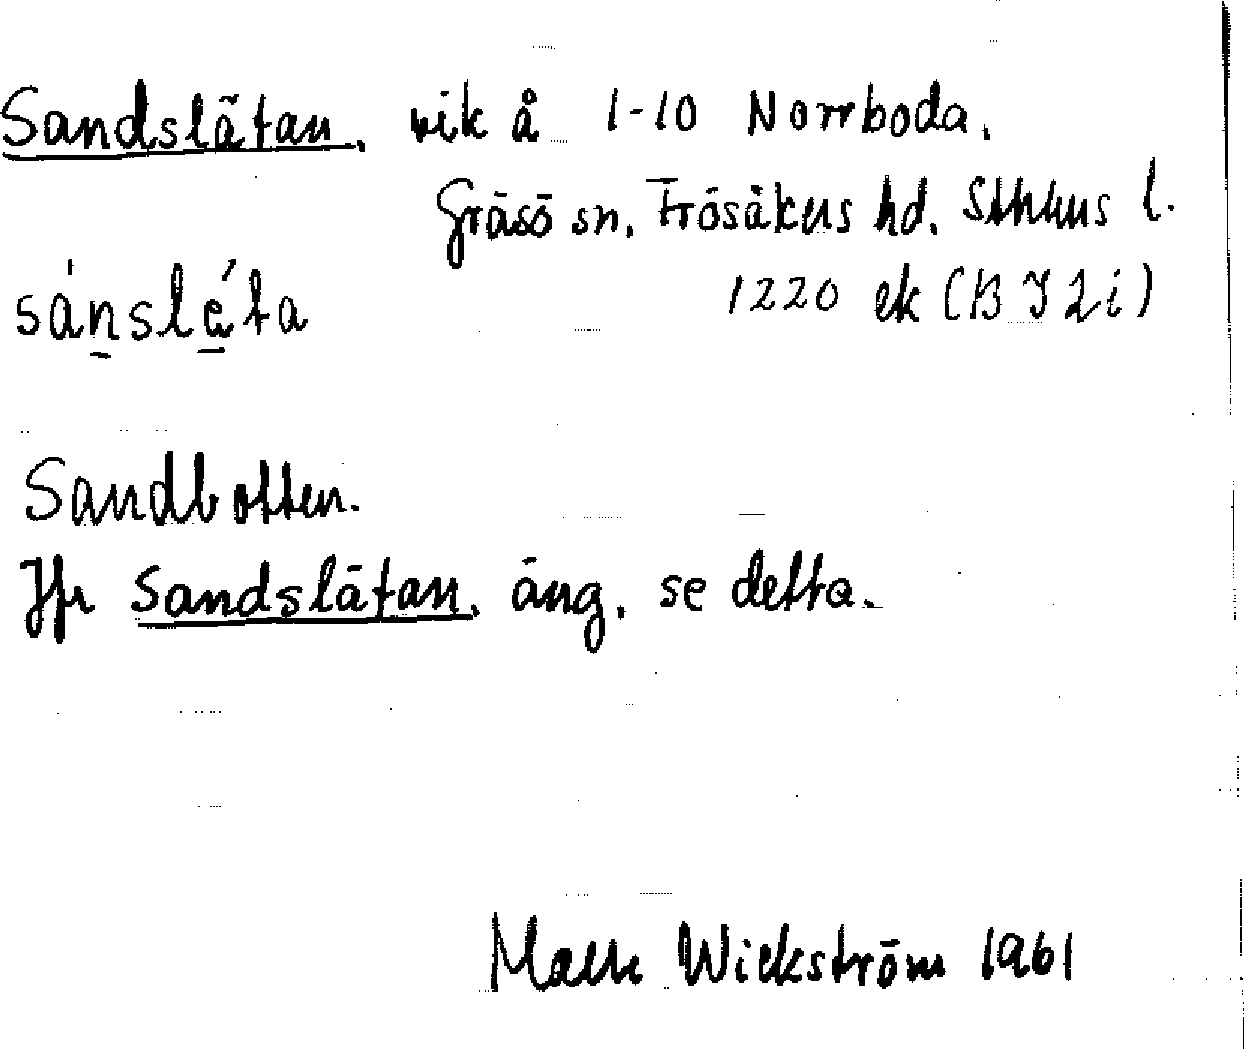 Sandslätan, vik å 1-10 Norrboda.
Gräsö sn, Frösåkers hd. Sthlms l.
sánsléta 1220 ek (13 I 2i)
Sandbotten.
Jfr Sandslätan, äng, se detta.
Wickström 1961